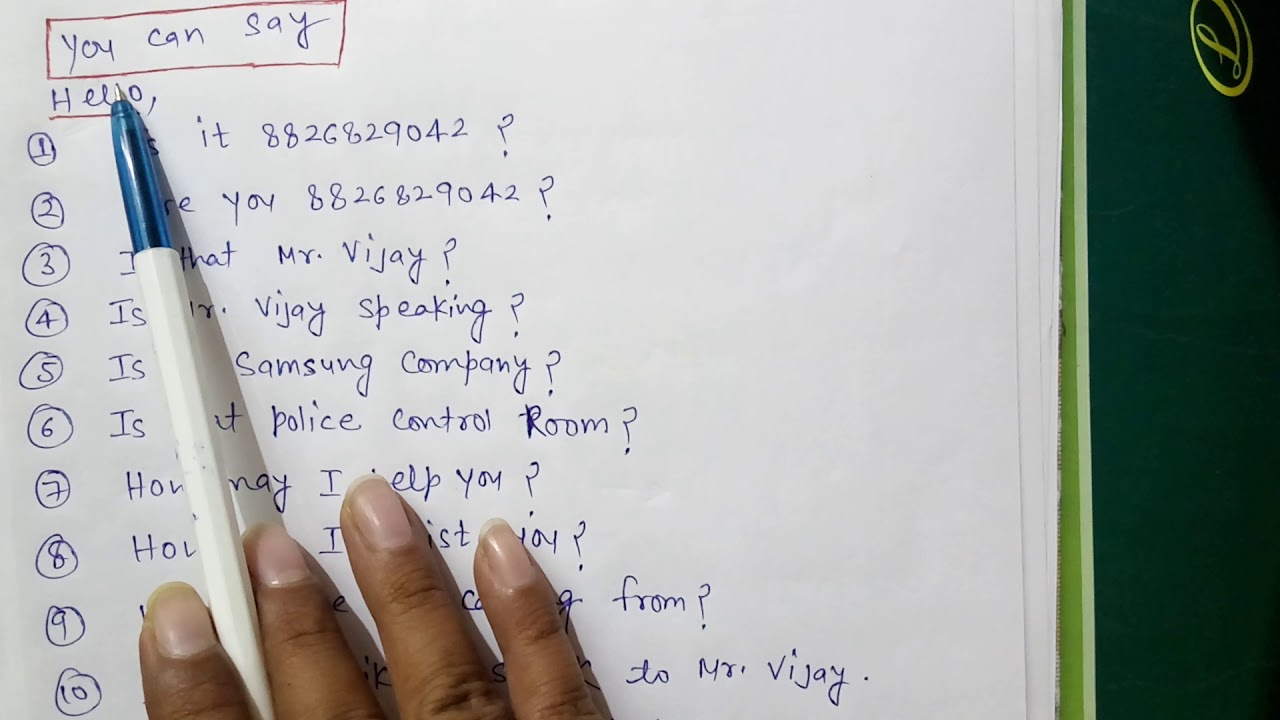 You can say
Hello,
① it 8826829042 ?
② you 8826829042 ?
③ that Mr. Vijay ?
④ Is Vijay speaking ?
⑤ Is Samsung Company ?
⑥ Is police control Room ?
⑦ How may I help you ?
⑧ I you ?
⑨ from ?
⑩ to Mr. Vijay .